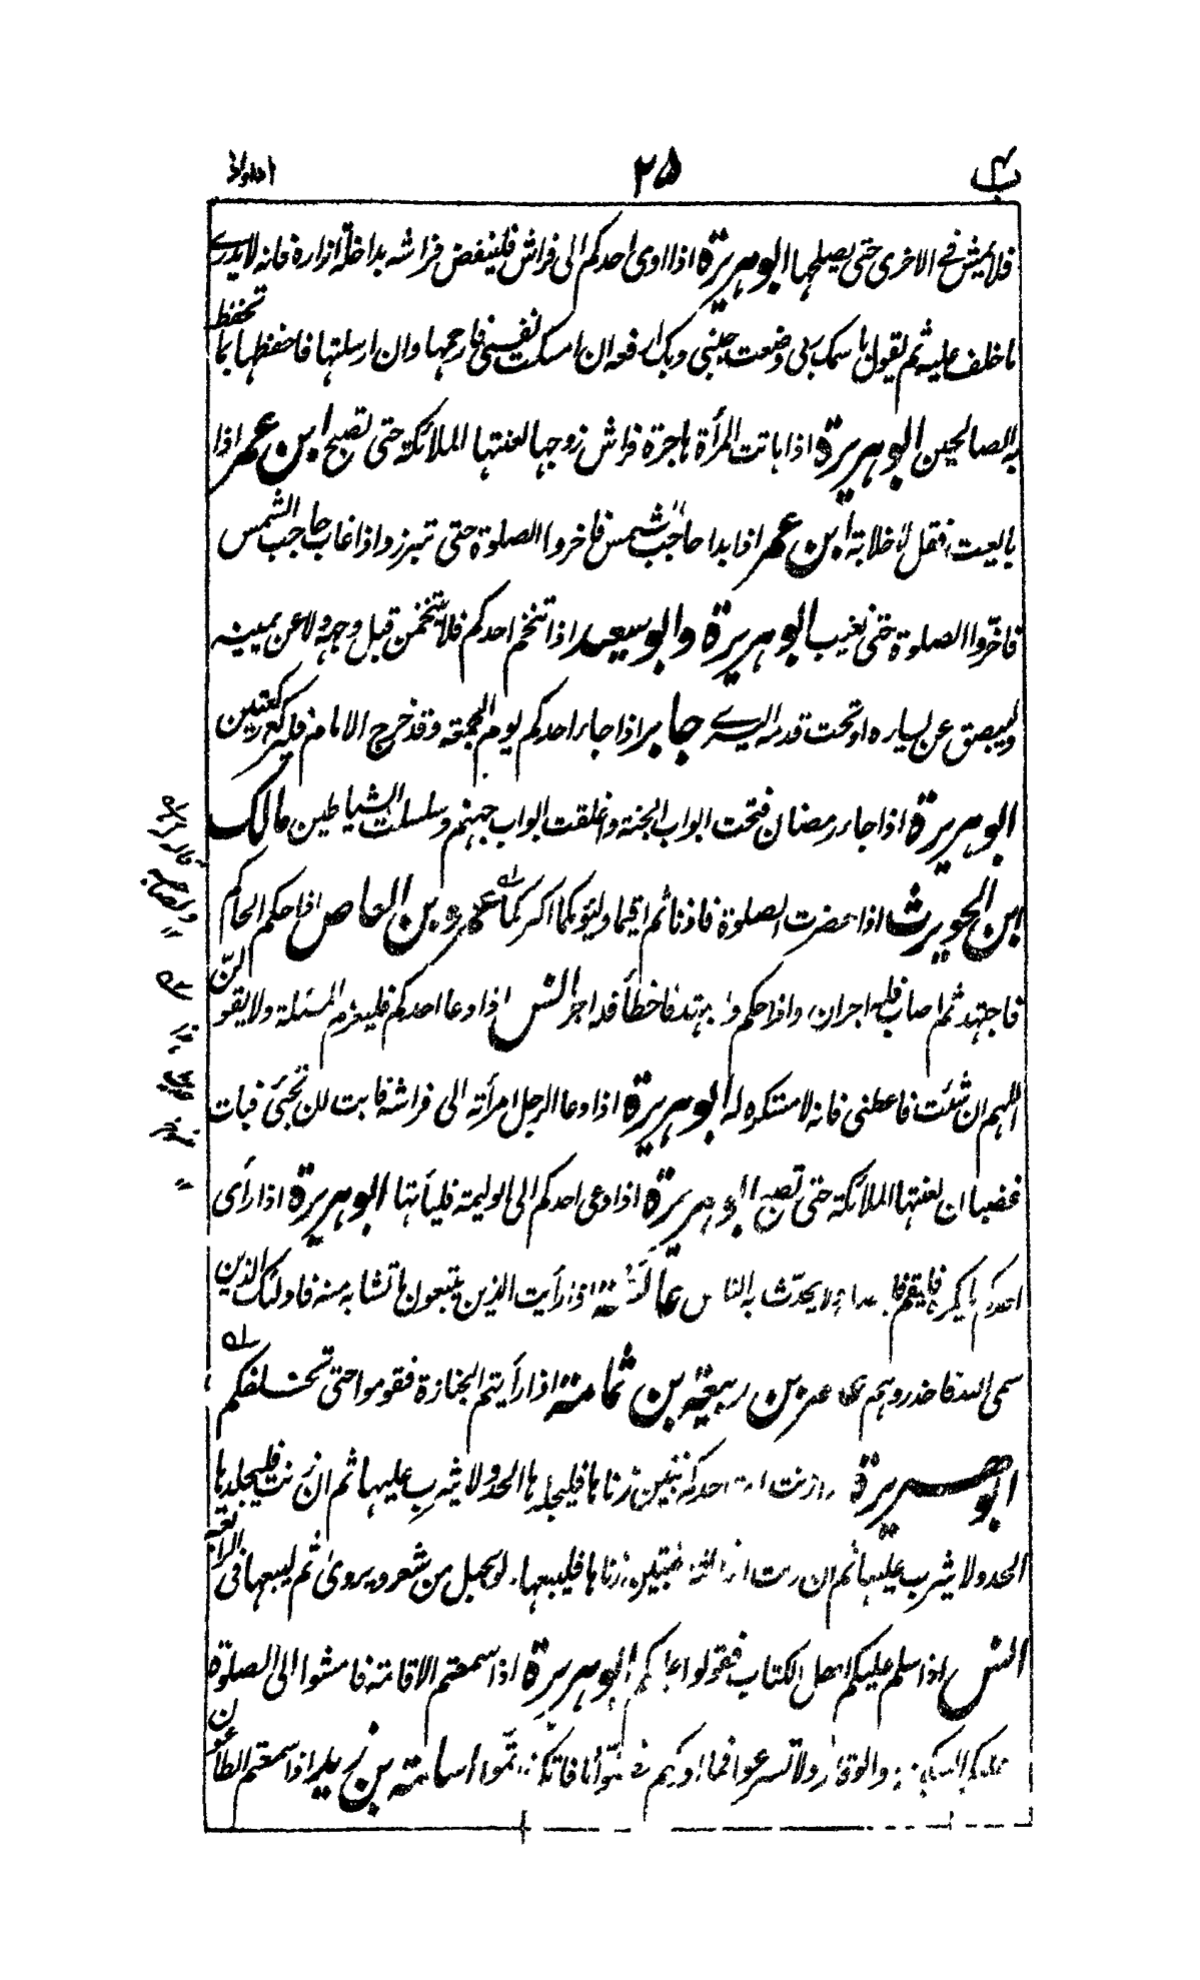 ب ٢٥
فلا يمش فى الاخرى حتى يصلحها ابوهريرة اذا اوى احدكم الى فراش فلينفض فراشه بداخلة ازاره فانه لا يدرے
ما خلف عليه ثم ليقول باسمك ربى وضعت جنبى وبك ارفعه ان امسكت نفسى فارحمها وان ارسلتها فاحفظها بما تحفظ
به الصالحين ابوهريرة اذا باتت المرأة هاجرة فراش زوجها لعنتها الملائكة حتى تصبح ابن عمر اذا
بايعت فقل لا خلابة ابن عمر اذا بدا حاجب الشمس فاخروا الصلوة حتى تبرز واذا غاب حاجب الشمس
فاخّروا الصلوة حتى تغيب ابوهريرة وابوسعيد اذا تنخم احدكم فلا يتنخمن قبل وجهه ولا عن يمينه
وليبصق عن يساره او تحت قدمه اليسرے جابر اذا جاء احدكم يوم الجمعة وقد خرج الامام فليركع ركعتين
ابوهريرة اذا جاء رمضان فتحت ابواب الجنة وغلقت ابواب جهنم وسلسلت الشياطين مالك
ابن الحويرث اذا حضرت الصلوة فاذنا ثم اقيما وليؤمكما اكبركما عمرو بن العاص اذا حكم الحاكم
فاجتهد ثم اصاب فله اجران واذا حكم واجتهد فاخطأ فله اجر انس اذا دعا احدكم فليعزم المسئلة ولا يقولنّ
اللهم ان شئت فاعطنى فانه لا مستكره له ابوهريرة اذا دعا الرجل امرأته الى فراشه فابت ان تجئ فبات
غضبان لعنتها الملائكة حتى تصبح ابوهريرة اذا دعى احدكم الى الوليمة فليأتها ابوهريرة اذا رأى
احدكم ما يكره فليقم ولا يحدّث به الناس عائشة اذا رأيت الذين يتبعون ما تشابه منه فاولئك الذين
سمى الله فاحذروهم عامر بن ربيعة بن ثمامة اذا رأيتم الجنازة فقوموا حتى تخلفكم
ابوهريرة اذا زنت امة احدكم فتبين زناها فليجلدها الحد ولا يثرب عليها ثم ان زنت فليجلدها
الحد ولا يثرب عليها ثم ان زنت الثالثة فتبين زناها فليبعها ولو بحبل من شعر ويروى ثم ليبعها فى الرابعة
انس اذا سلم عليكم اهل الكتاب فقولوا عليكم ابوهريرة اذا سمعتم الاقامة فامشوا الى الصلوة
عليكم السكينة والوقار ولا تسرعوا فما ادركتم فصلوا وما فاتكم فاتمّوا اسامة بن زيد اذا سمعتم الطاعون